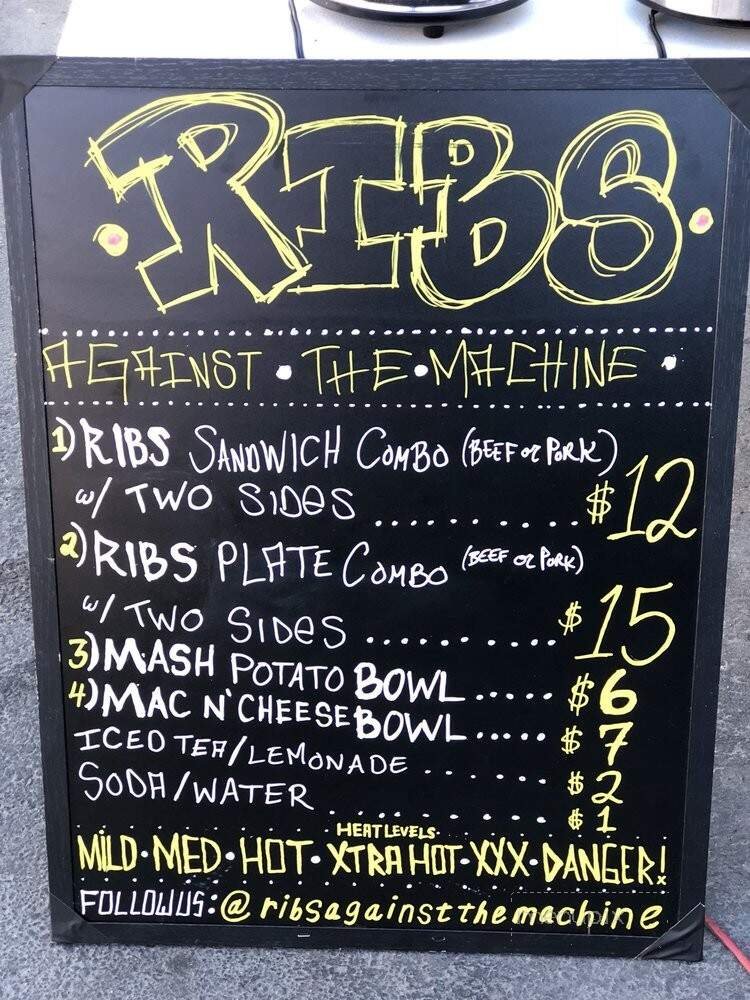 RIBS
AGAINST • THE • MACHINE •
1) RIBS SANDWICH COMBO (BEEF or PORK)
w/ TWO SIDES .......... $12
2) RIBS PLATE COMBO (BEEF or PORK)
w/ TWO SIDES .......... $15
3) MASH POTATO BOWL ..... $6
4) MAC N' CHEESE BOWL ..... $7
ICED TEA/LEMONADE ...... $2
SODA/WATER .......... $1
HEAT LEVELS
MILD • MED • HOT • XTRA HOT • XXX • DANGER!
FOLLOW US: @ribsagainstthemachine